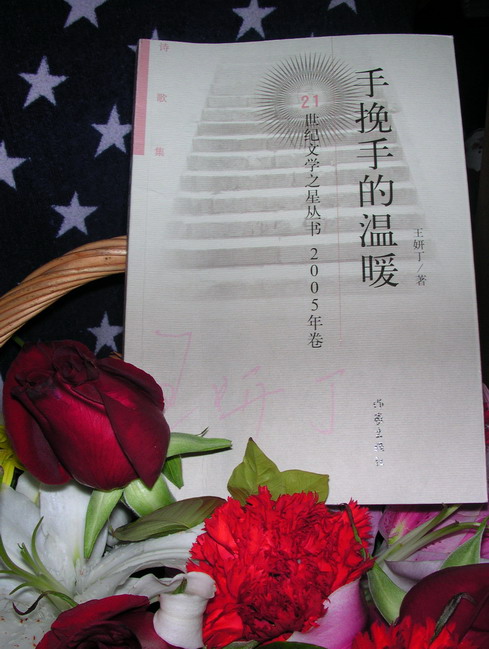 诗歌集
手挽手的温暖
王妍丁/著
21
世纪文学之星丛书 2005年卷
王妍丁
作家出版社